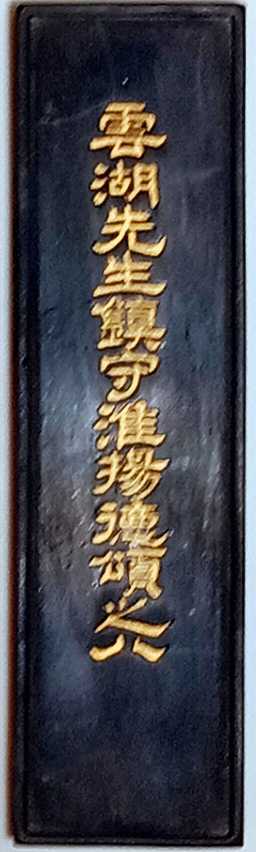 雲湖先生鎮守淮揚德頌之八